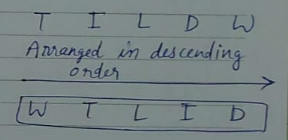 T I L D W
Arranged in descending
order
W T L I D